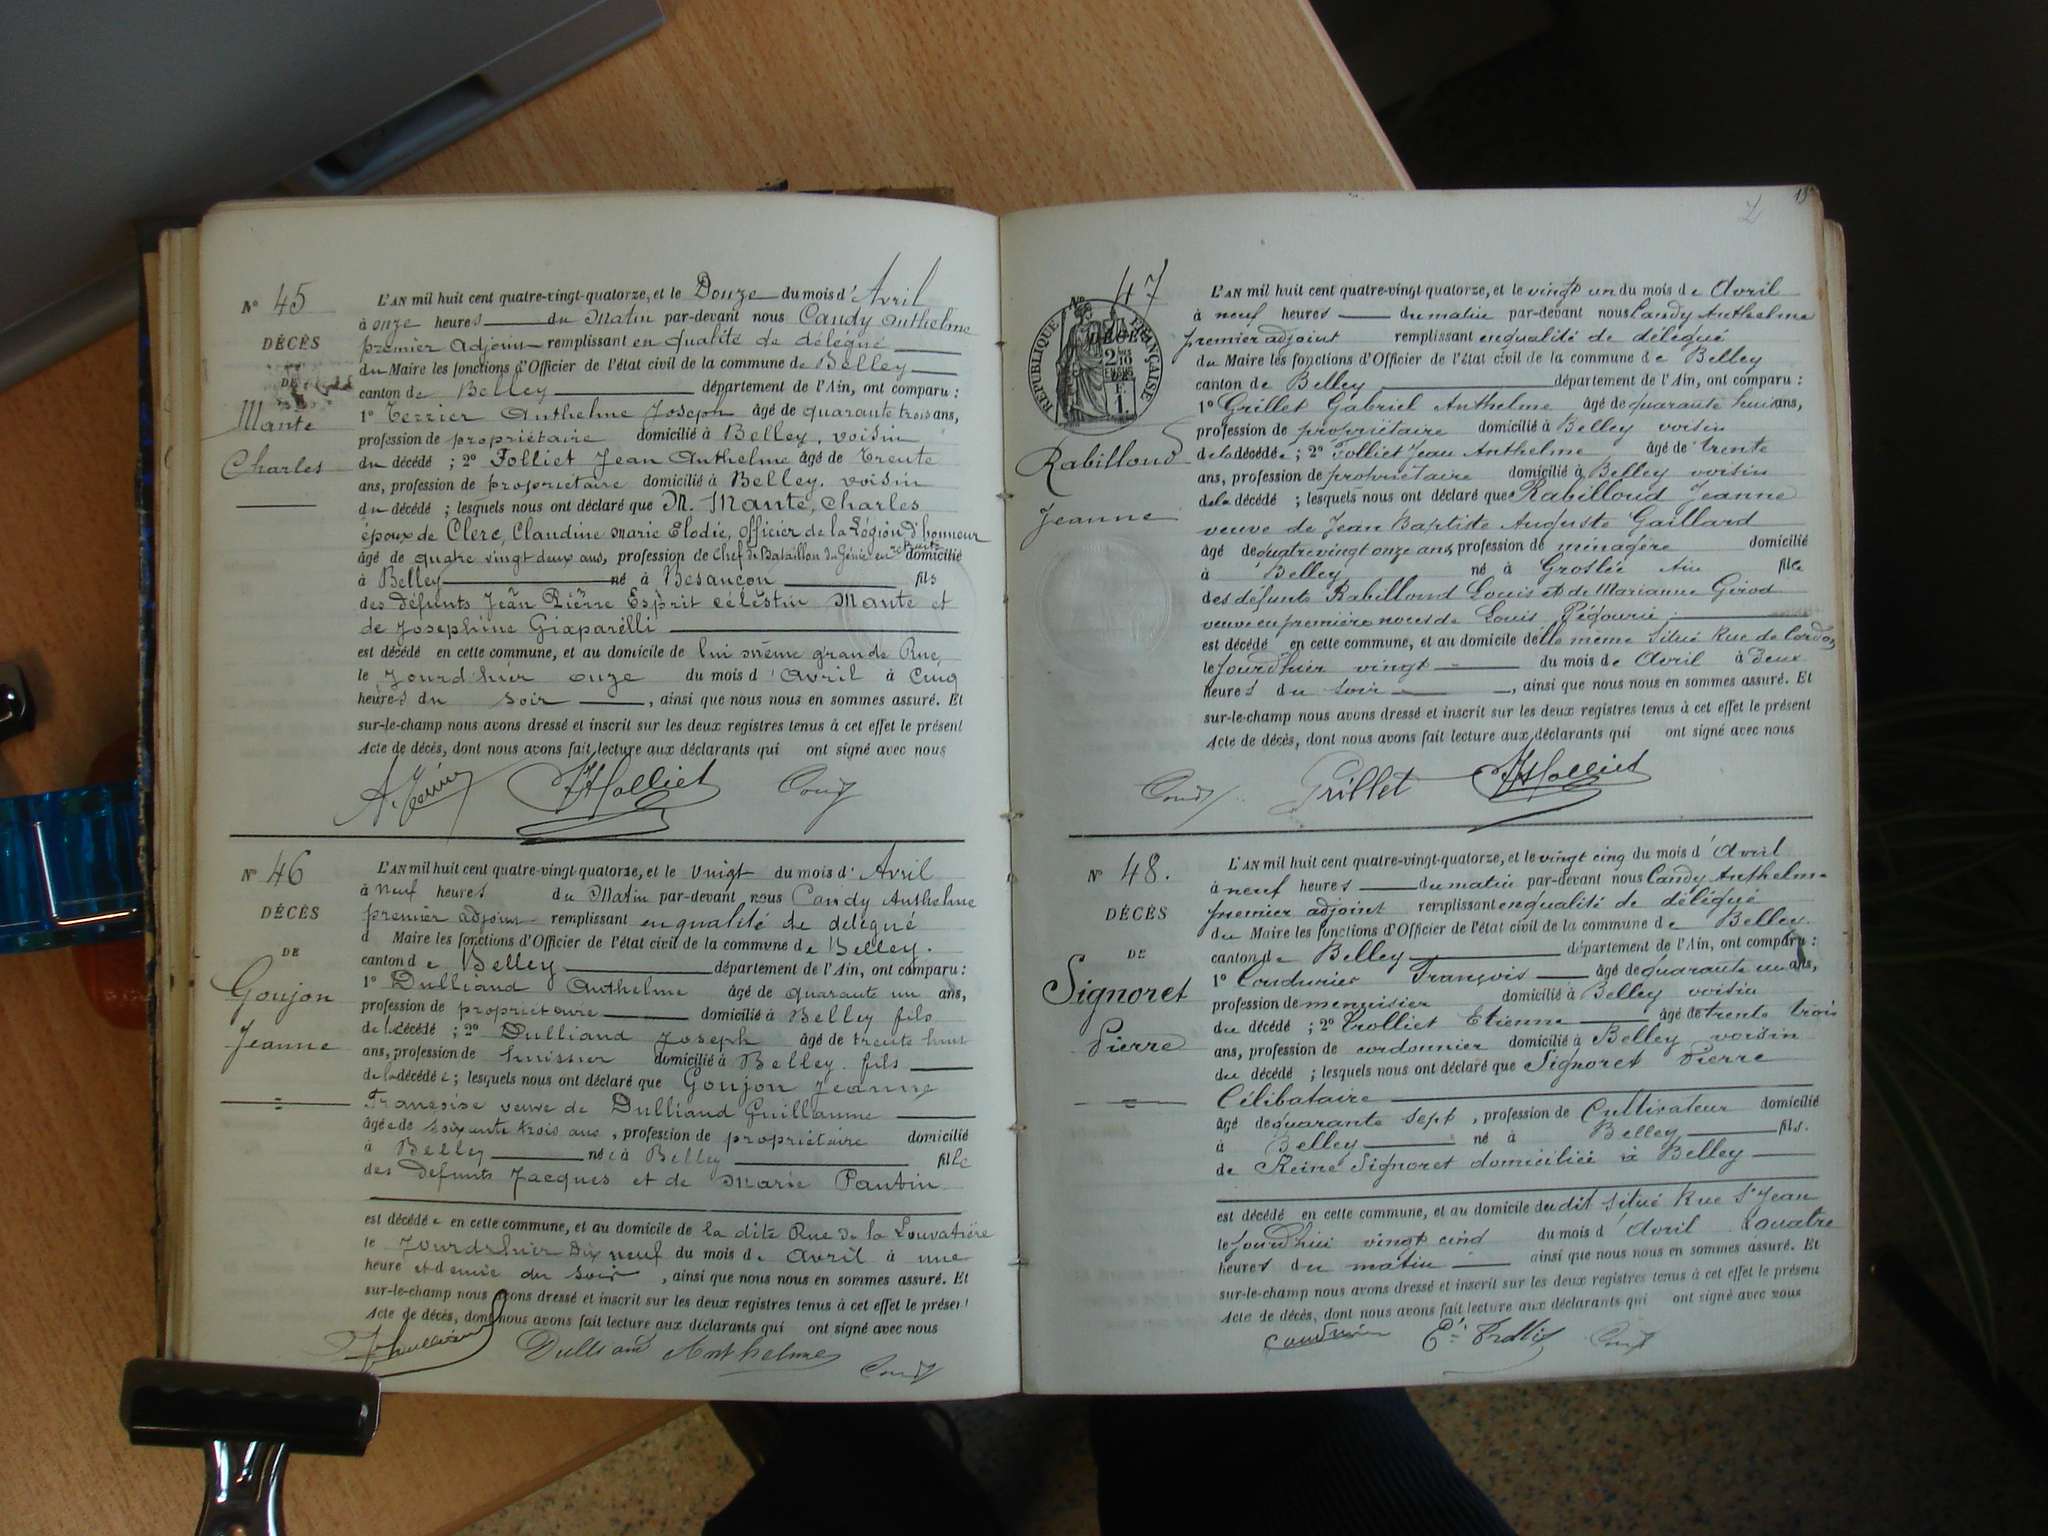 N° 45
DÉCÈS
DE
Mante
Charles
L'AN mil huit cent quatre-vingt-quatorze, et le Douze du mois d'Avril
à onze heures du Matin par-devant nous Candy Anthelme
premier Adjoint remplissant en qualité de délégué
du Maire les fonctions d'Officier de l'état civil de la commune de Belley
canton de Belley département de l'Ain, ont comparu :
1° Terrier Anthelme Joseph âgé de quarante trois ans,
profession de propriétaire domicilié à Belley, voisin
du décédé ; 2° Folliet Jean Anthelme âgé de trente
ans, profession de propriétaire domicilié à Belley, voisin
du décédé ; lesquels nous ont déclaré que M. Mante, Charles
époux de Clerc, Claudine Marie Elodie, officier de la Légion d'honneur
âgé de quatre vingt deux ans, profession de Chef de Bataillon du Génie en retraite domicilié
à Belley né à Besançon fils
des défunts Jean Pierre Esprit Célestin Mante et
de Josephine Gixparélli
est décédé en cette commune, et au domicile de lui même grande Rue,
le Jourd'hier onze du mois d'Avril à cinq
heures du soir , ainsi que nous nous en sommes assuré. Et
sur-le-champ nous avons dressé et inscrit sur les deux registres tenus à cet effet le présent
Acte de décès, dont nous avons fait lecture aux déclarants qui ont signé avec nous
JAFolliet Candy
N° 46
DÉCÈS
DE
Goujon
Jeanne
L'AN mil huit cent quatre-vingt-quatorze, et le vingt du mois d'Avril
à neuf heures du Matin par-devant nous Candy Anthelme
premier adjoint remplissant en qualité de délégué
d Maire les fonctions d'Officier de l'état civil de la commune de Belley.
canton de Belley département de l'Ain, ont comparu :
1° Dulliand Anthelme âgé de quarante un ans,
profession de propriétaire domicilié à Belley fils
de la décédé ; 2° Dulliand Joseph âgé de trente huit
ans, profession de huissier domicilié à Belley. fils
de la décédée ; lesquels nous ont déclaré que Goujon Jeanne
Françoise veuve de Dulliand Guillaume
âgée de soixante trois ans , profession de propriétaire domicilié
à Belley née à Belley fille
des défunts Jacques et de Marie Pantin
est décédée en cette commune, et au domicile de la dite Rue de la Louvatière
le Jourd'hier Dix neuf du mois de Avril à une
heure et demie du soir , ainsi que nous nous en sommes assuré. Et
sur-le-champ nous avons dressé et inscrit sur les deux registres tenus à cet effet le présent
Acte de décès, dont nous avons fait lecture aux déclarants qui ont signé avec nous
JDulliand Dulliand Anthelme Candy
N° 47
DÉCÈS
RÉPUBLIQUE FRANÇAISE
Rabilloud
Jeanne
L'AN mil huit cent quatre-vingt-quatorze, et le vingt un du mois de Avril
à neuf heures du matin par-devant nous Candy Anthelme
premier adjoint remplissant en qualité de délégué
du Maire les fonctions d'Officier de l'état civil de la commune de Belley
canton de Belley département de l'Ain, ont comparu :
1° Grillet Gabriel Anthelme âgé de quarante huit ans,
profession de propriétaire domicilié à Belley voisin
de la décédée ; 2° Folliet Jean Anthelme âgé de trente
ans, profession de propriétaire domicilié à Belley voisin
de la décédé ; lesquels nous ont déclaré que Rabilloud Jeanne
veuve de Jean Baptiste Auguste Gaillard
âgé de quatre vingt onze ans, profession de ménagère domicilié
à Belley né à Groslée Ain fille
des défunts Rabilloud Louis et de Marianne Girod
veuve en premières noces de Louis
est décédé en cette commune, et au domicile d'elle même situé Rue de
le Jourd'hier vingt du mois de Avril à deux
heures du soir , ainsi que nous nous en sommes assuré. Et
sur-le-champ nous avons dressé et inscrit sur les deux registres tenus à cet effet le présent
Acte de décès, dont nous avons fait lecture aux déclarants qui ont signé avec nous
Candy Grillet JAFolliet
N° 48.
DÉCÈS
DE
Signoret
Pierre
L'AN mil huit cent quatre-vingt-quatorze, et le vingt cinq du mois d'Avril
à neuf heures du matin par-devant nous Candy Anthelme
premier adjoint remplissant en qualité de délégué
du Maire les fonctions d'Officier de l'état civil de la commune de Belley.
canton de Belley département de l'Ain, ont comparu :
1° Coudurier François âgé de quarante un ans,
profession de menuisier domicilié à Belley voisin
du décédé ; 2° Trolliet Etienne âgé de trente trois
ans, profession de cordonnier domicilié à Belley voisin
du décédé ; lesquels nous ont déclaré que Signoret Pierre
Célibataire
âgé de quarante sept , profession de Cultivateur domicilié
à Belley né à Belley fils.
de Reine Signoret domiciliée à Belley
est décédé en cette commune, et au domicile du dit situé Rue St Jean
le Jourd'hui vingt cinq du mois d'Avril à quatre
heures du matin ainsi que nous nous en sommes assuré. Et
sur-le-champ nous avons dressé et inscrit sur les deux registres tenus à cet effet le présent
Acte de décès, dont nous avons fait lecture aux déclarants qui ont signé avec nous
Coudurier Et. Trolliet Candy